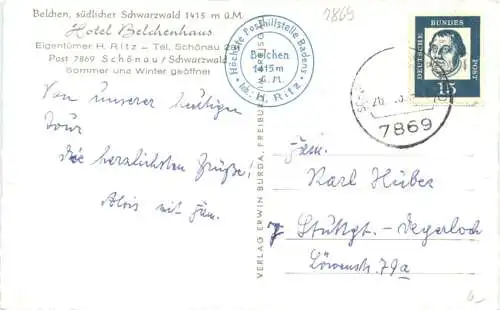 Belchen, südlicher Schwarzwald 1415 m ü.M.
Hotel Belchenhaus
Eigentümer H. Ritz - Tel. Schönau 28
Post 7869 Schönau/Schwarzwald
Sommer und Winter geöffnet
Höchste Posthilfstelle Badens
Belchen
1415 m
ü. M.
Inh.: H. Ritz
7869
DEUTSCHE BUNDES POST
15
7869
Von unserer heutigen
Tour
die herzlichsten Grüße!
Alois mit Fam.
VERLAG ERWIN BURDA, FREIBURG
Fam.
Karl Huber
7 Stuttgt.-Degerloch
Löwenstr. 79a